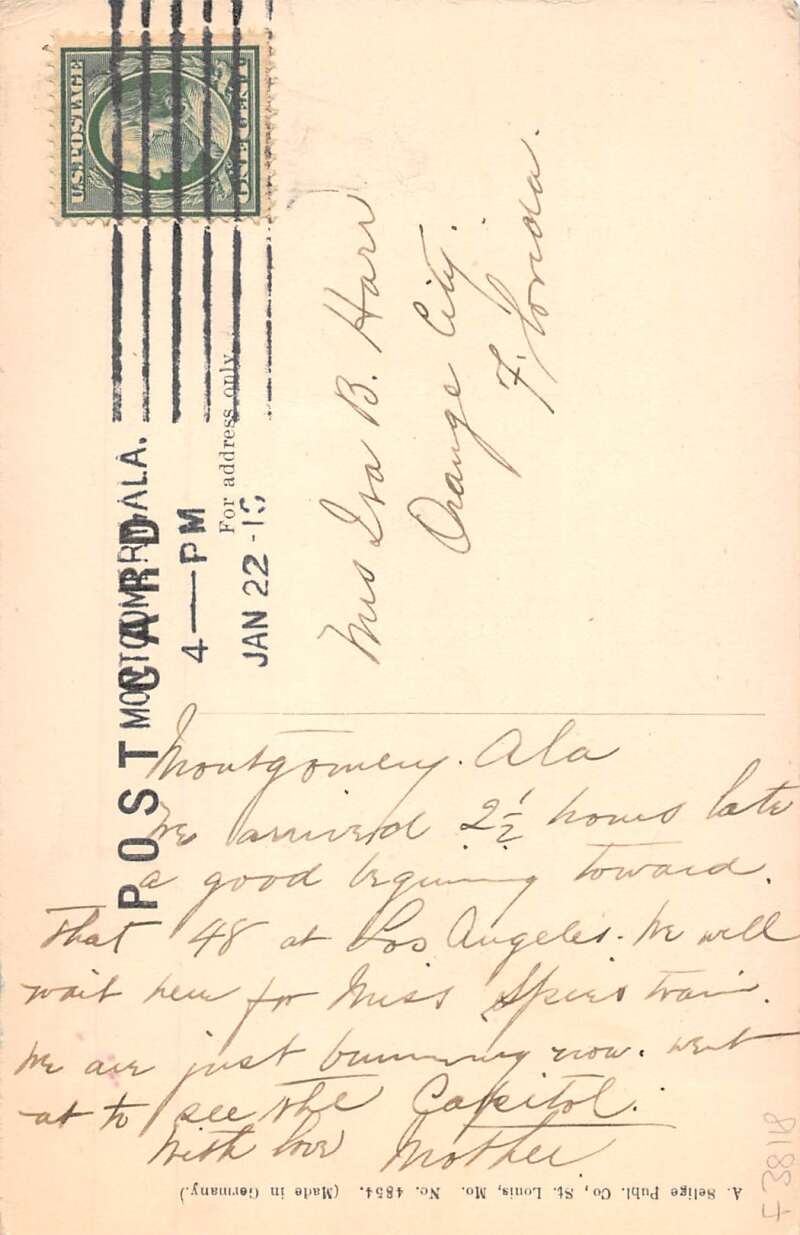 U.S. POSTAGE
ONE CENT
POST CARD
MONTGOMERY, ALA.
4—PM
JAN 22-10
For address only.
Mrs Iva B. Harr
Orange City.
Florida.
Montgomery. Ala
We arrived 2½ hours late
a good begining toward.
that 48 at Los Angeles. We will
wait here for Miss Spiers train.
We are just bumming now. went
to see the Capitol.
With love Mother
A. Selige Publ. Co., St. Louis, Mo. No. 4854. (Made in Germany.)
F3818